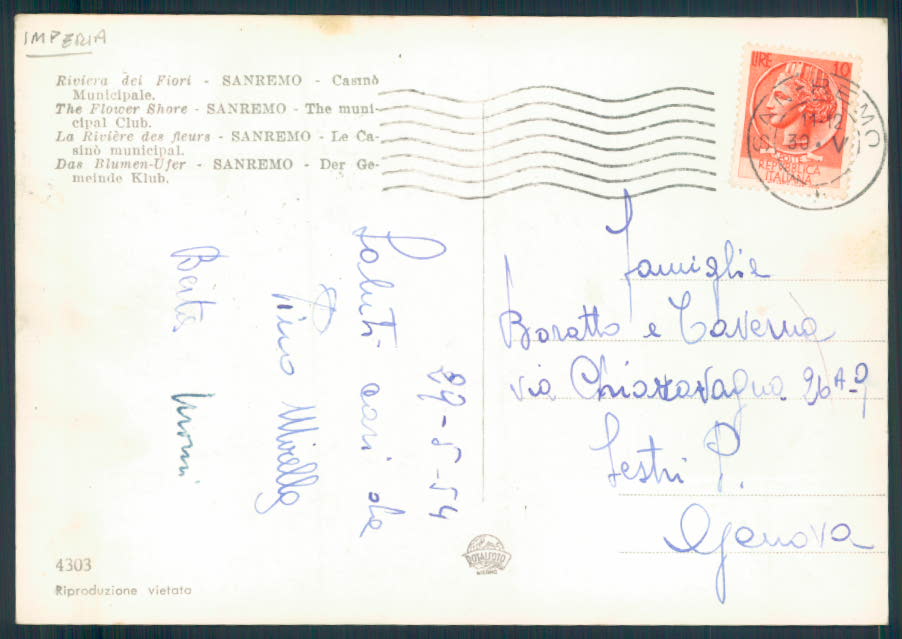 IMPERIA
Riviera dei Fiori - SANREMO - Casinò
Municipale.
The Flower Shore - SANREMO - The muni-
cipal Club.
La Rivière des fleurs - SANREMO - Le Ca-
sinò municipal.
Das Blumen-Ufer - SANREMO - Der Ge-
meinde Klub.
LIRE 10
POSTE
REPUBBLICA
ITALIANA
SANREMO
11-12
30.V
29-5-54
Saluti cari da
Pino Mirella
Berta
Famiglie
Boratto e Taverna
via Chiaravagna 26A-9
Sestri P.
Genova
ROTALFOTO
MILANO
4303
Riproduzione vietata